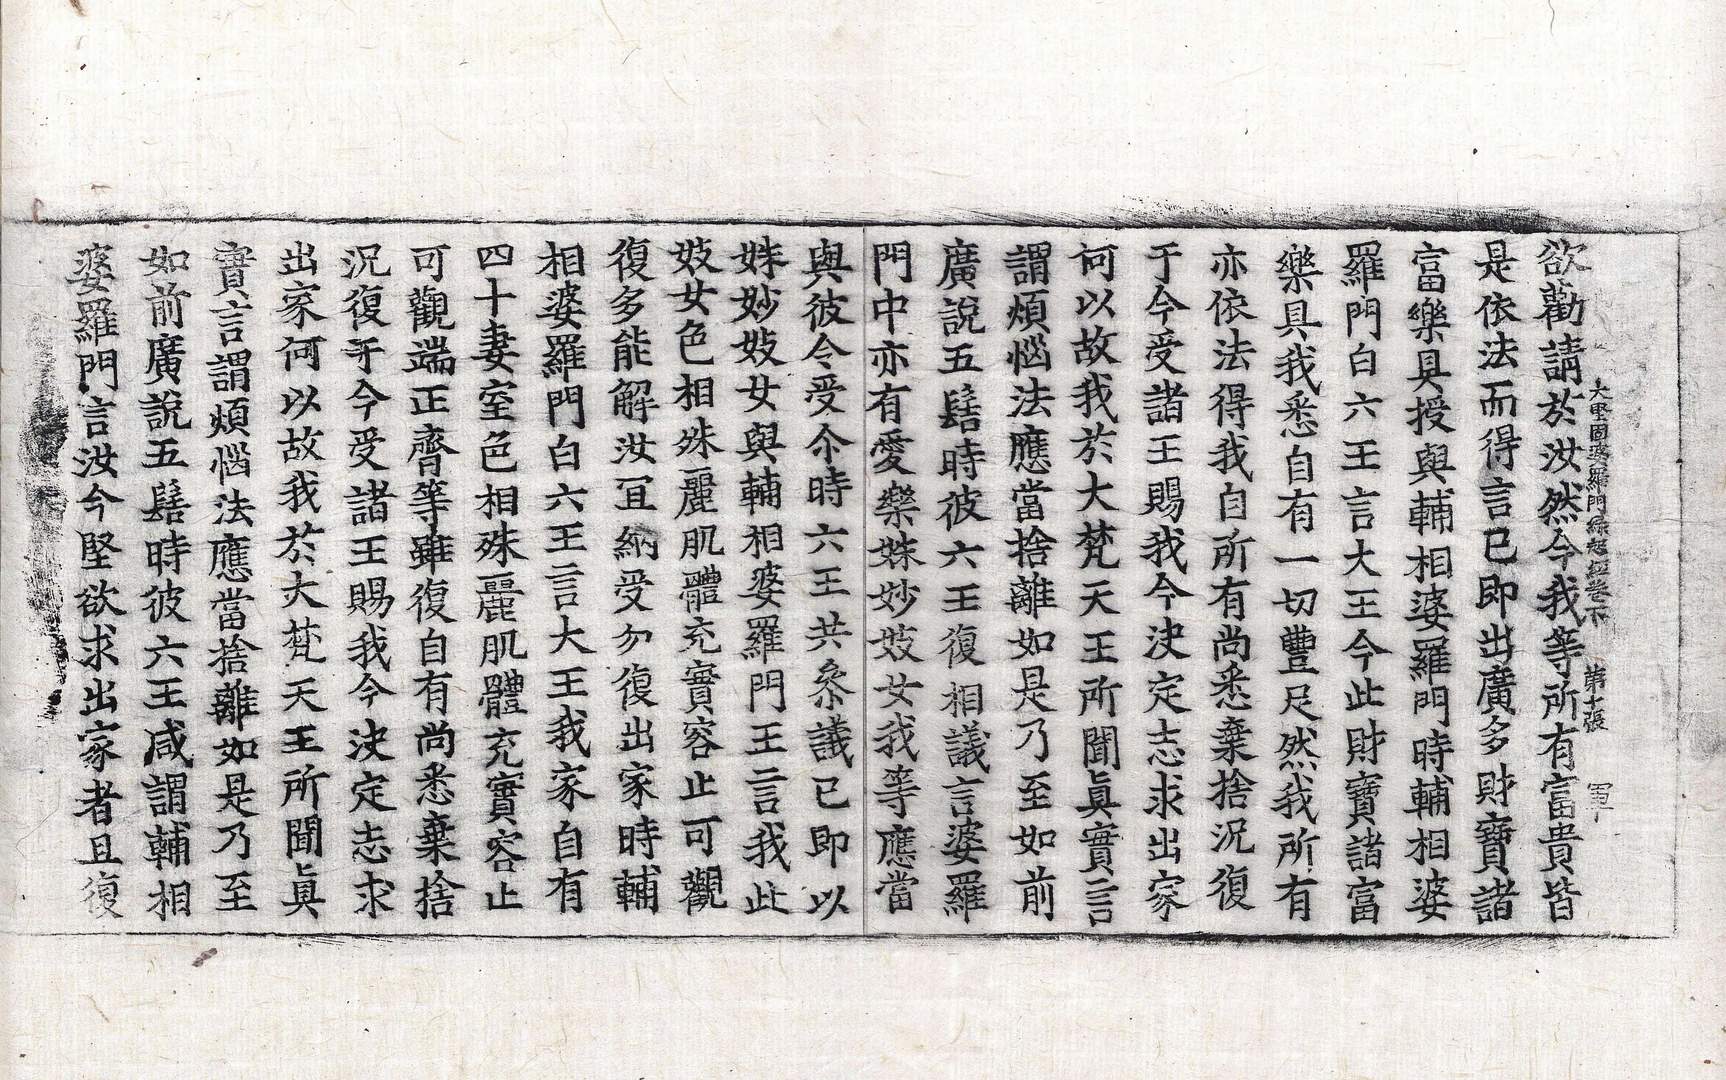 大堅固婆羅門緣起經卷下　第十張
欲勸請於汝然今我等所有富貴皆
是依法而得言已即出廣多財寶諸
富樂具授與輔相婆羅門時輔相婆
羅門白六王言大王今此財寶諸富
樂具我悉自有一切豐足然我所有
亦依法得我自所有尚悉棄捨況復
于今受諸王賜我今決定志求出家
何以故我於大梵天王所聞真實言
謂煩惱法應當捨離如是乃至如前
廣說五髻時彼六王復相議言婆羅
門中亦有愛樂姝妙妓女我等應當
與彼令受尒時六王共叅議已即以
姝妙妓女與輔相婆羅門王言我此
妓女色相殊麗肌體充實容止可觀
復多能解汝宜納受勿復出家時輔
相婆羅門白六王言大王我家自有
四十妻室色相殊麗肌體充實容止
可觀端正齊等雖復自有尚悉棄捨
況復于今受諸王賜我今決定志求
出家何以故我於大梵天王所聞真
實言謂煩惱法應當捨離如是乃至
如前廣說五髻時彼六王咸謂輔相
婆羅門言汝今堅欲求出家者且復